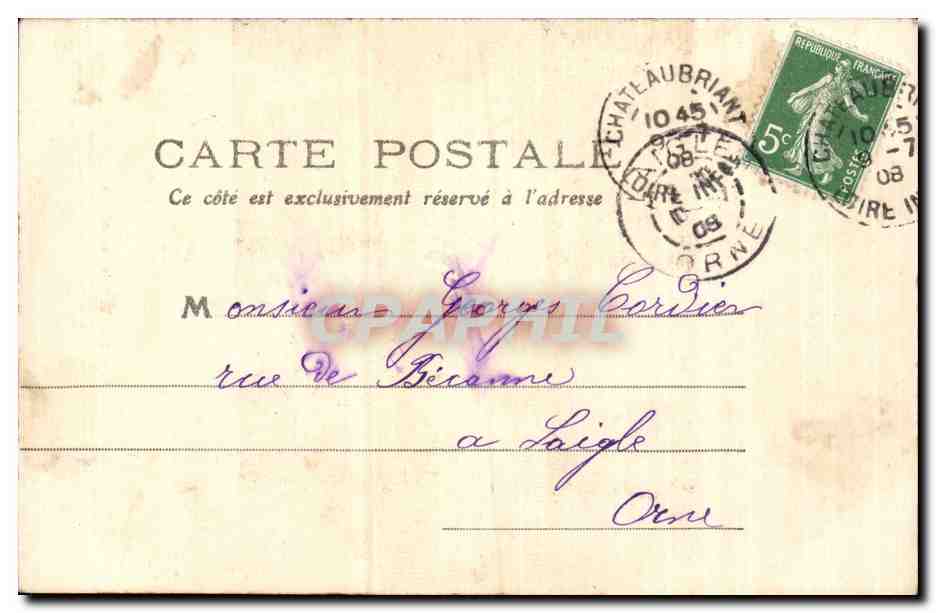 RÉPUBLIQUE FRANÇAISE
5c
POSTES
CHATEAUBRIANT
10 45
9 -7
08
LOIRE INFRE
ORNE
08
CHATEAUBRI
10 45
9 -7
08
LOIRE IN
CARTE POSTALE
Ce côté est exclusivement réservé à l'adresse
Monsieur Georges Cordier
rue de Bécanne
a Laigle
Orne
CPAPHIL